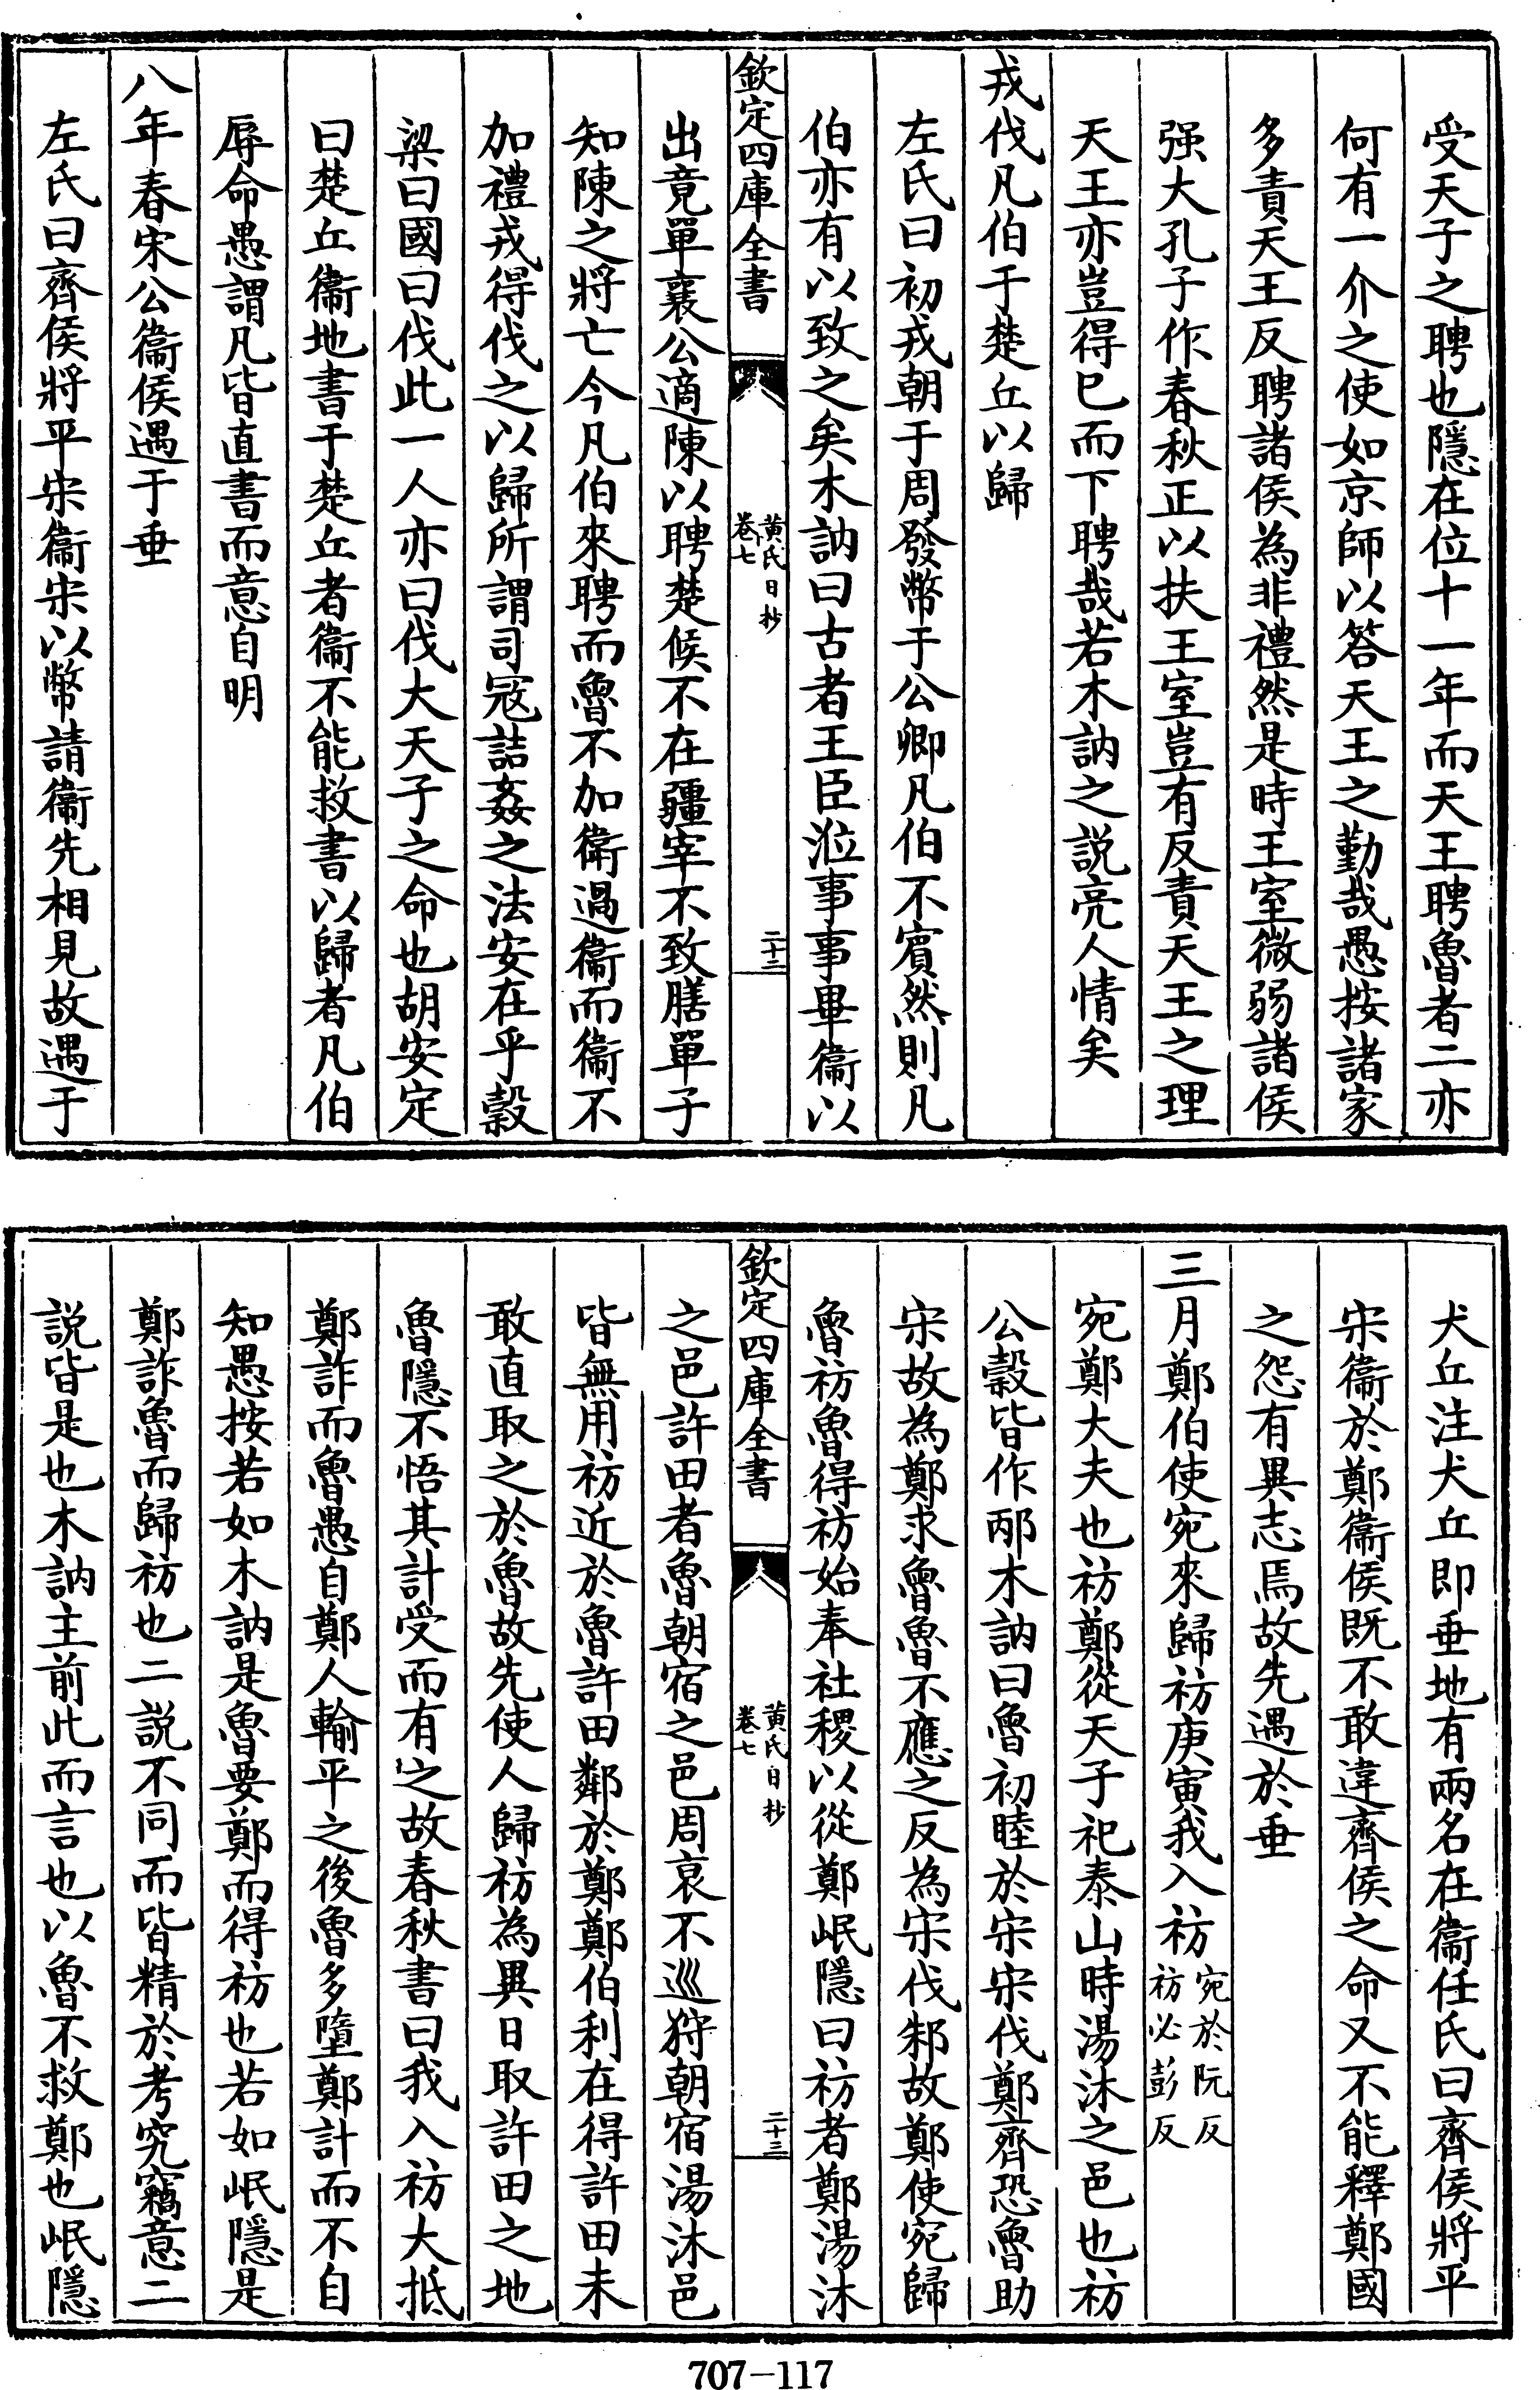 受天子之聘也隱在位十一年而天王聘魯者二亦
何有一介之使如京師以答天王之勤哉愚按諸家
多責天王反聘諸侯為非禮然是時王室微弱諸侯
强大孔子作春秋正以扶王室豈有反責天王之理
天王亦豈得已而下聘哉若木訥之説亮人情矣
戎伐凡伯于楚丘以歸
左氏曰初戎朝于周發幣于公卿凡伯不賓然則凡
伯亦有以致之矣木訥曰古者王臣涖事事畢衞以
欽定四庫全書
黃氏日抄
卷七
二十二
出竟單襄公適陳以聘楚候不在疆宰不致膳單子
知陳之將亡今凡伯來聘而魯不加衞過衞而衞不
加禮戎得伐之以歸所謂司冦詰姦之法安在乎穀
梁曰國曰伐此一人亦曰伐大天子之命也胡安定
曰楚丘衞地書于楚丘者衞不能救書以歸者凡伯
辱命愚謂凡皆直書而意自明
八年春宋公衞侯遇于垂
左氏曰齊侯將平宋衞宋以幣請衞先相見故遇于
犬丘注犬丘即垂地有兩名在衞任氏曰齊侯將平
宋衞於鄭衞侯既不敢違齊侯之命又不能釋鄭國
之怨有異志焉故先遇於垂
三月鄭伯使宛來歸祊庚寅我入祊宛於阮反
祊必彭反
宛鄭大夫也祊鄭從天子祀泰山時湯沐之邑也祊
公穀皆作邴木訥曰魯初睦於宋宋伐鄭齊恐魯助
宋故為鄭求魯魯不應之反為宋伐邾故鄭使宛歸
魯祊魯得祊始奉社稷以從鄭岷隱曰祊者鄭湯沐
欽定四庫全書
黃氏日抄
卷七
二十三
之邑許田者魯朝宿之邑周衰不巡狩朝宿湯沐邑
皆無用祊近於魯許田鄰於鄭鄭伯利在得許田未
敢直取之於魯故先使人歸祊為異日取許田之地
魯隱不悟其計受而有之故春秋書曰我入祊大抵
鄭詐而魯愚自鄭人輸平之後魯多墮鄭計而不自
知愚按若如木訥是魯要鄭而得祊也若如岷隱是
鄭詐魯而歸祊也二説不同而皆精於考究竊意二
説皆是也木訥主前此而言也以魯不救鄭也岷隱
707-117